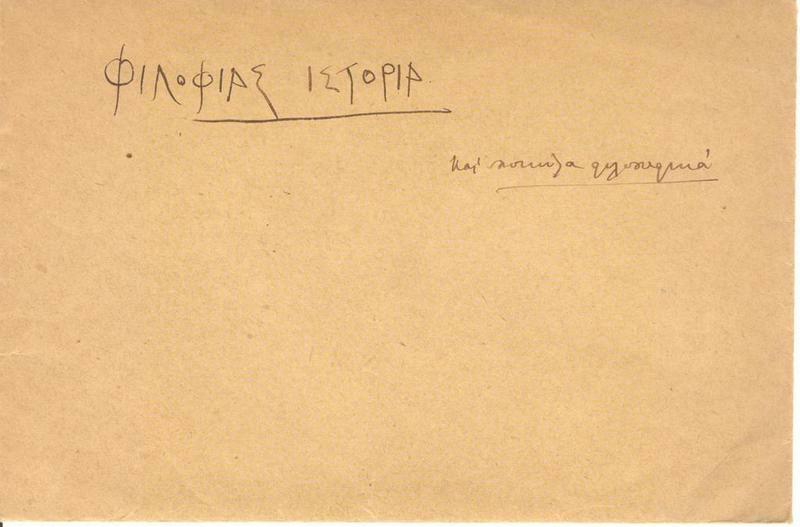 ΦΙΛΟΦΙΑΣ ΙΣΤΟΡΙΑ
καὶ ποικίλα φιλοσοφικά